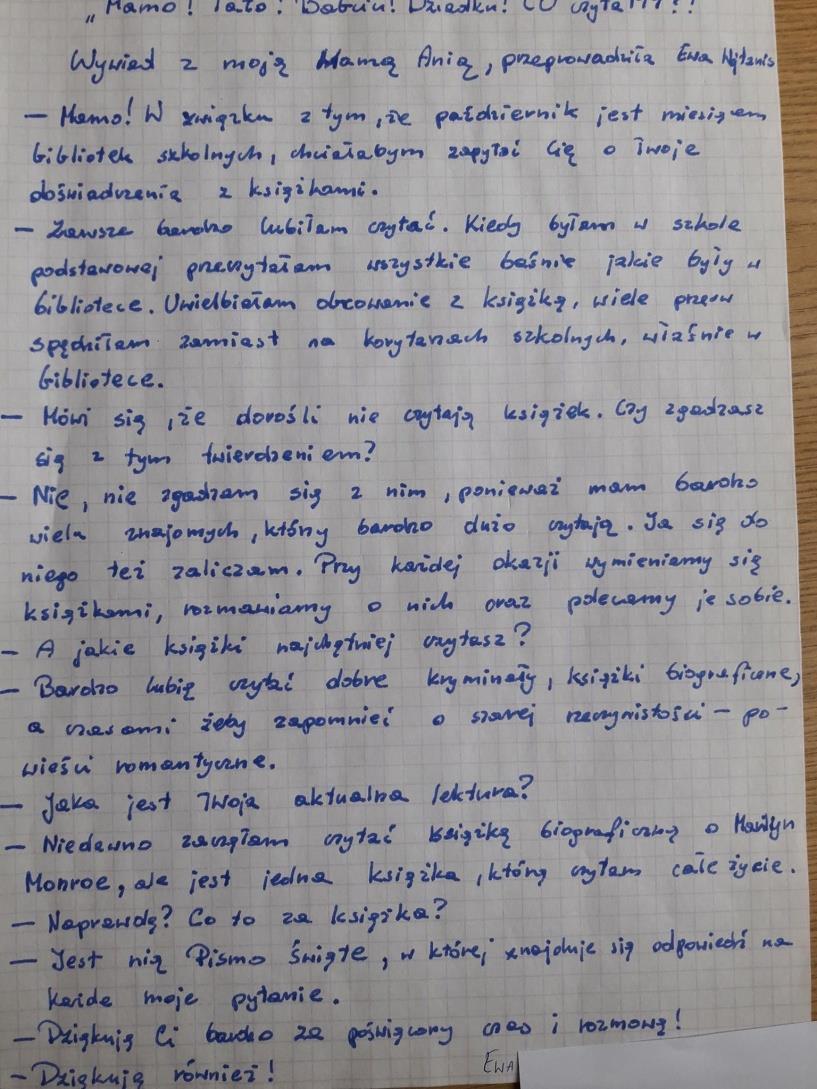 „Mamo! Tato! Babciu! Dziadku! CO czyta!???!
Wywiad z moją Mamą Anią, przeprowadziła Ewa
— Mamo! W związku z tym, że październik jest miesiącem
bibliotek szkolnych, chciałabym zapytać Cię o Twoje
doświadczenia z książkami.
— Zawsze bardzo lubiłam czytać. Kiedy byłam w szkole
podstawowej przeczytałam wszystkie baśnie jakie były w
bibliotece. Uwielbiałam obcowanie z książką, wiele przerw
spędziłam zamiast na korytarzach szkolnych, właśnie w
bibliotece.
— Mówi się, że dorośli nie czytają książek. Czy zgadzasz
się z tym twierdzeniem?
— Nie, nie zgadzam się z nim, ponieważ mam bardzo
wielu znajomych, którzy bardzo dużo czytają. Ja się do
niego też zaliczam. Przy każdej okazji wymieniamy się
książkami, rozmawiamy o nich oraz polecamy je sobie.
— A jakie książki najchętniej czytasz?
— Bardzo lubię czytać dobre kryminały, książki biograficzne,
a czasami żeby zapomnieć o szarej rzeczywistości – po-
wieści romantyczne.
— Jaka jest Twoja aktualna lektura?
— Niedawno zaczęłam czytać książkę biograficzną o Marilyn
Monroe, ale jest jedna książka, którą czytam całe życie.
— Naprawdę? Co to za książka?
— Jest nią Pismo Święte, w której znajduje się odpowiedź na
każde moje pytanie.
— Dziękuję Ci bardzo za poświęcony czas i rozmowę!
— Dziękuję również!
Ewa